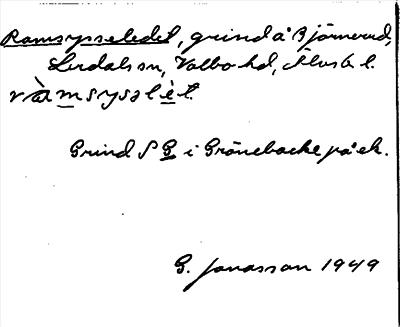 Ramsysseledet, grind å Björnerud,
Lerdals sn, Valbo hd, Älvsb. l.
ràmsysəlèt.
Grind S G i Grönebacke på ek.
G. Jonasson 1949